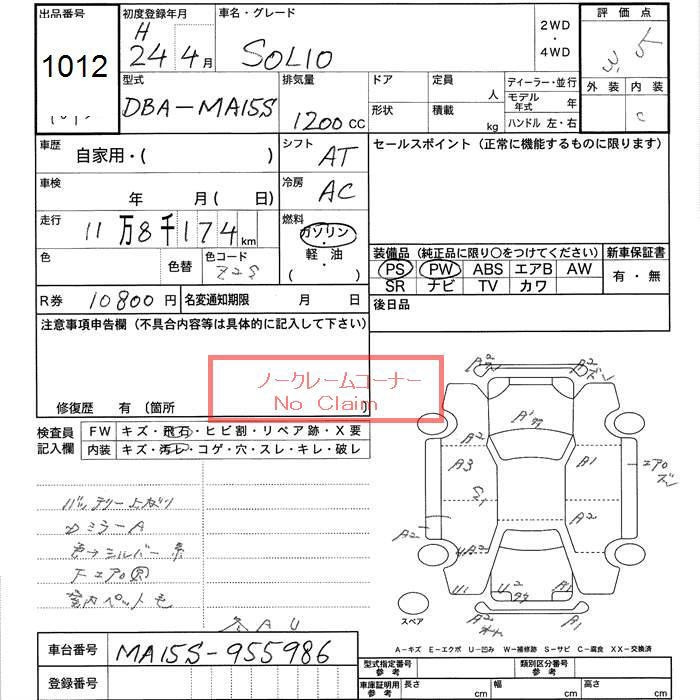 出品番号 初度登録年月 車名・グレード 2WD ・ 4WD 評価点
1012 H 24年 4月 SOLIO
型式 排気量 ドア 定員 人 ディーラー・並行 外装 内装
DBA-MA15S 1200cc 形状 積載 kg モデル年式 年 C
ハンドル 左・右
車歴 自家用・( ) シフト AT セールスポイント(正常に機能するものに限ります)
車検 年 月( 日) 冷房 AC
走行 11万8千174km 燃料 ガソリン・軽油 ( )
色 色替 色コード Z2S
装備品(純正品に限り〇をつけてください) 新車保証書
PS PW ABS エアB AW 有・無
SR ナビ TV カワ
R券 10800円 名変通知期限 月 日 後日品
注意事項申告欄(不具合内容等は具体的に記入して下さい)
ノークレームコーナー
No Claim
修復歴 有(箇所
検査員記入欄 FW キズ・飛石・ヒビ割・リペア跡・X要
内装 キズ・汚レ・コゲ・穴・スレ・キレ・破レ
A2 A2
A1
A2 A3 A1 エアロ
A2 A2
A1
A2
バッテリー上がり
ミラーA
色→シルバー系
室内ペット毛
スペア
A-キズ E-エクボ U-凹み W-補修跡 S-サビ C-腐食 XX-交換済
車台番号 MA15S-955986
型式指定番号 参考 類別区分番号 参考
登録番号
車庫証明用 参考 長さ cm 幅 cm 高さ cm